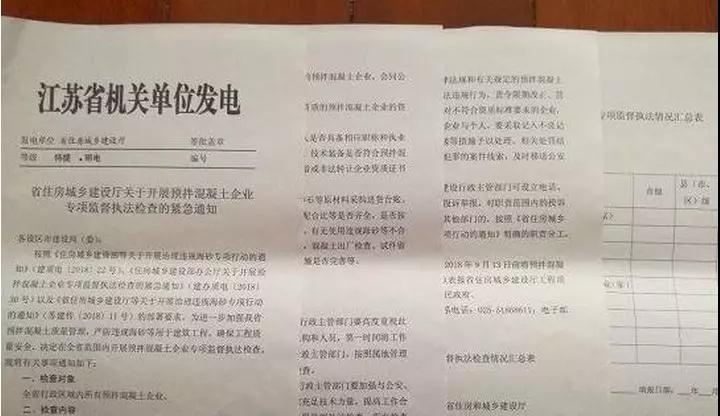 江苏省机关单位发电
发电单位 省住房城乡建设厅 签批盖章
等级 特提·明电 编号
省住房城乡建设厅关于开展预拌混凝土企业
专项监督执法检查的紧急通知
各设区市建设局（委）：
按照《住房城乡建设部等关于开展治理违规海砂专项行动的通
知》（建质电〔2018〕22号）、《住房城乡建设部办公厅关于开展预
拌混凝土企业专项监督执法检查的紧急通知》（建办质电〔2018〕
30号）以及《省住房城乡建设厅等关于开展治理违规海砂专项行动
的通知》（苏建传〔2018〕11号）的部署要求，为进一步加强我省
预拌混凝土质量管理，严防违规海砂等用于建筑工程，确保工程质量
安全，决定在全省范围内开展预拌混凝土企业专项监督执法检查。
现将有关事项通知如下：
一、检查对象
全省行政区域内所有预拌混凝土企业。
二、检查内容
预拌混凝土企业，会同公
资质的预拌混凝土企业的资
人是否具备相应职称和执业
技术装备是否符合预拌混
或非法转让企业资质证书
石等原材料采购进货台账、
配合比等是否齐全，是否按
有无使用违规海砂等不合
混凝土出厂检查、试件留
施是否完善等。
行政主管部门要高度重视此
构和人员，第一时间将工作
政主管部门，按照属地管理
查。
行政主管部门要加强与公安、
充足技术力量，提高工作合
法规和有关规定的预拌混凝土
法违规行为，责令限期改正、
对不符合资质标准要求的企业，
企业与个人，要采取记入不良记
等措施予以处理。相关处罚结
犯罪的案件线索，及时移送公
建设行政主管部门可设立电话、
投诉举报，对职责范围内的投诉
其他部门的，按照《省住房城乡
项行动的通知》明确的职责分工，
2018年9月13日前将预拌混凝
表报省住房城乡建设厅工程质
民政府。
电话：025-51868611；电子邮
督执法检查情况汇总表
省住房和城乡建设厅
项监督执法情况汇总表
市级
县（市、
区）级
填报日期：
年
月